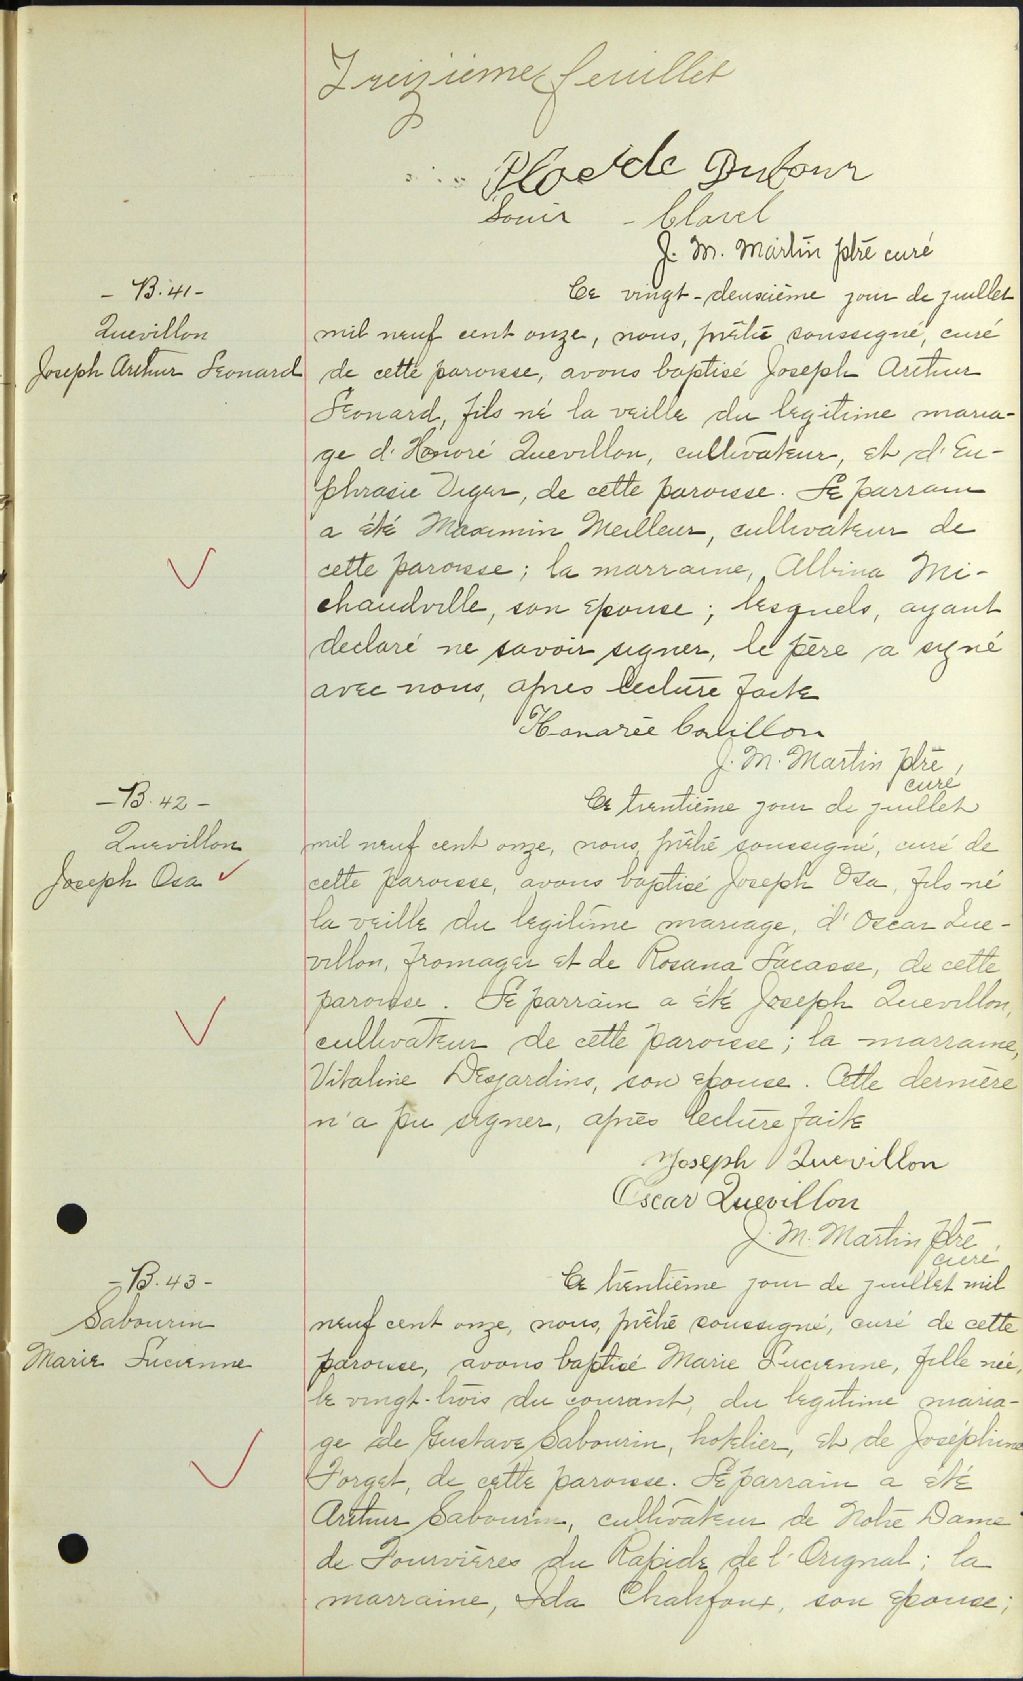 Treizième feuillet
Placide Dufour
Louis - Clavel
J. M. Martin ptre curé
- B. 41 -
Quevillon
Joseph Arthur Leonard
Ce vingt-deuxième jour de juillet
mil neuf cent onze, nous, prêtre soussigné, curé
de cette paroisse, avons baptisé Joseph Arthur
Leonard, fils né la veille du legitime maria-
ge d'Honoré Quevillon, cultivateur, et d'Eu-
phrasie Viger, de cette paroisse. Le parrain
a été Maximin Meilleur, cultivateur de
cette paroisse; la marraine, Albina Mi-
chaudville, son epouse; lesquels, ayant
declaré ne savoir signer, le père a signé
avec nous, apres lecture faite
Honarée Couillon
J. M. Martin ptre,
curé
- B. 42 -
Quevillon
Joseph Osa
Ce trentième jour de juillet
mil neuf cent onze, nous, prêtre soussigné, curé de
cette paroisse, avons baptisé Joseph Osa, fils né
la veille du legitime mariage, d'Oscar Que-
villon, fromager et de Rosana Lacasse, de cette
paroisse. Le parrain a été Joseph Quevillon,
cultivateur de cette paroisse; la marraine,
Vitaline Desjardins, son epouse. Cette dernière
n'a pu signer, après lecture faite
Joseph Quevillon
Oscar Quevillon
J. M. Martin ptre,
curé
- B. 43 -
Sabourin
Marie Lucienne
Ce trentième jour de juillet mil
neuf cent onze, nous, prêtre soussigné, curé de cette
paroisse, avons baptisé Marie Lucienne, fille née,
le vingt-trois du courant, du legitime maria-
ge de Gustave Sabourin, hotelier, et de Joséphine
Forget, de cette paroisse. Le parrain a eté
Arthur Sabourin, cultivateur de Notre Dame
de Fourvières du Rapide de l'Orignal; la
marraine, Ida Chalifoux, son epouse;